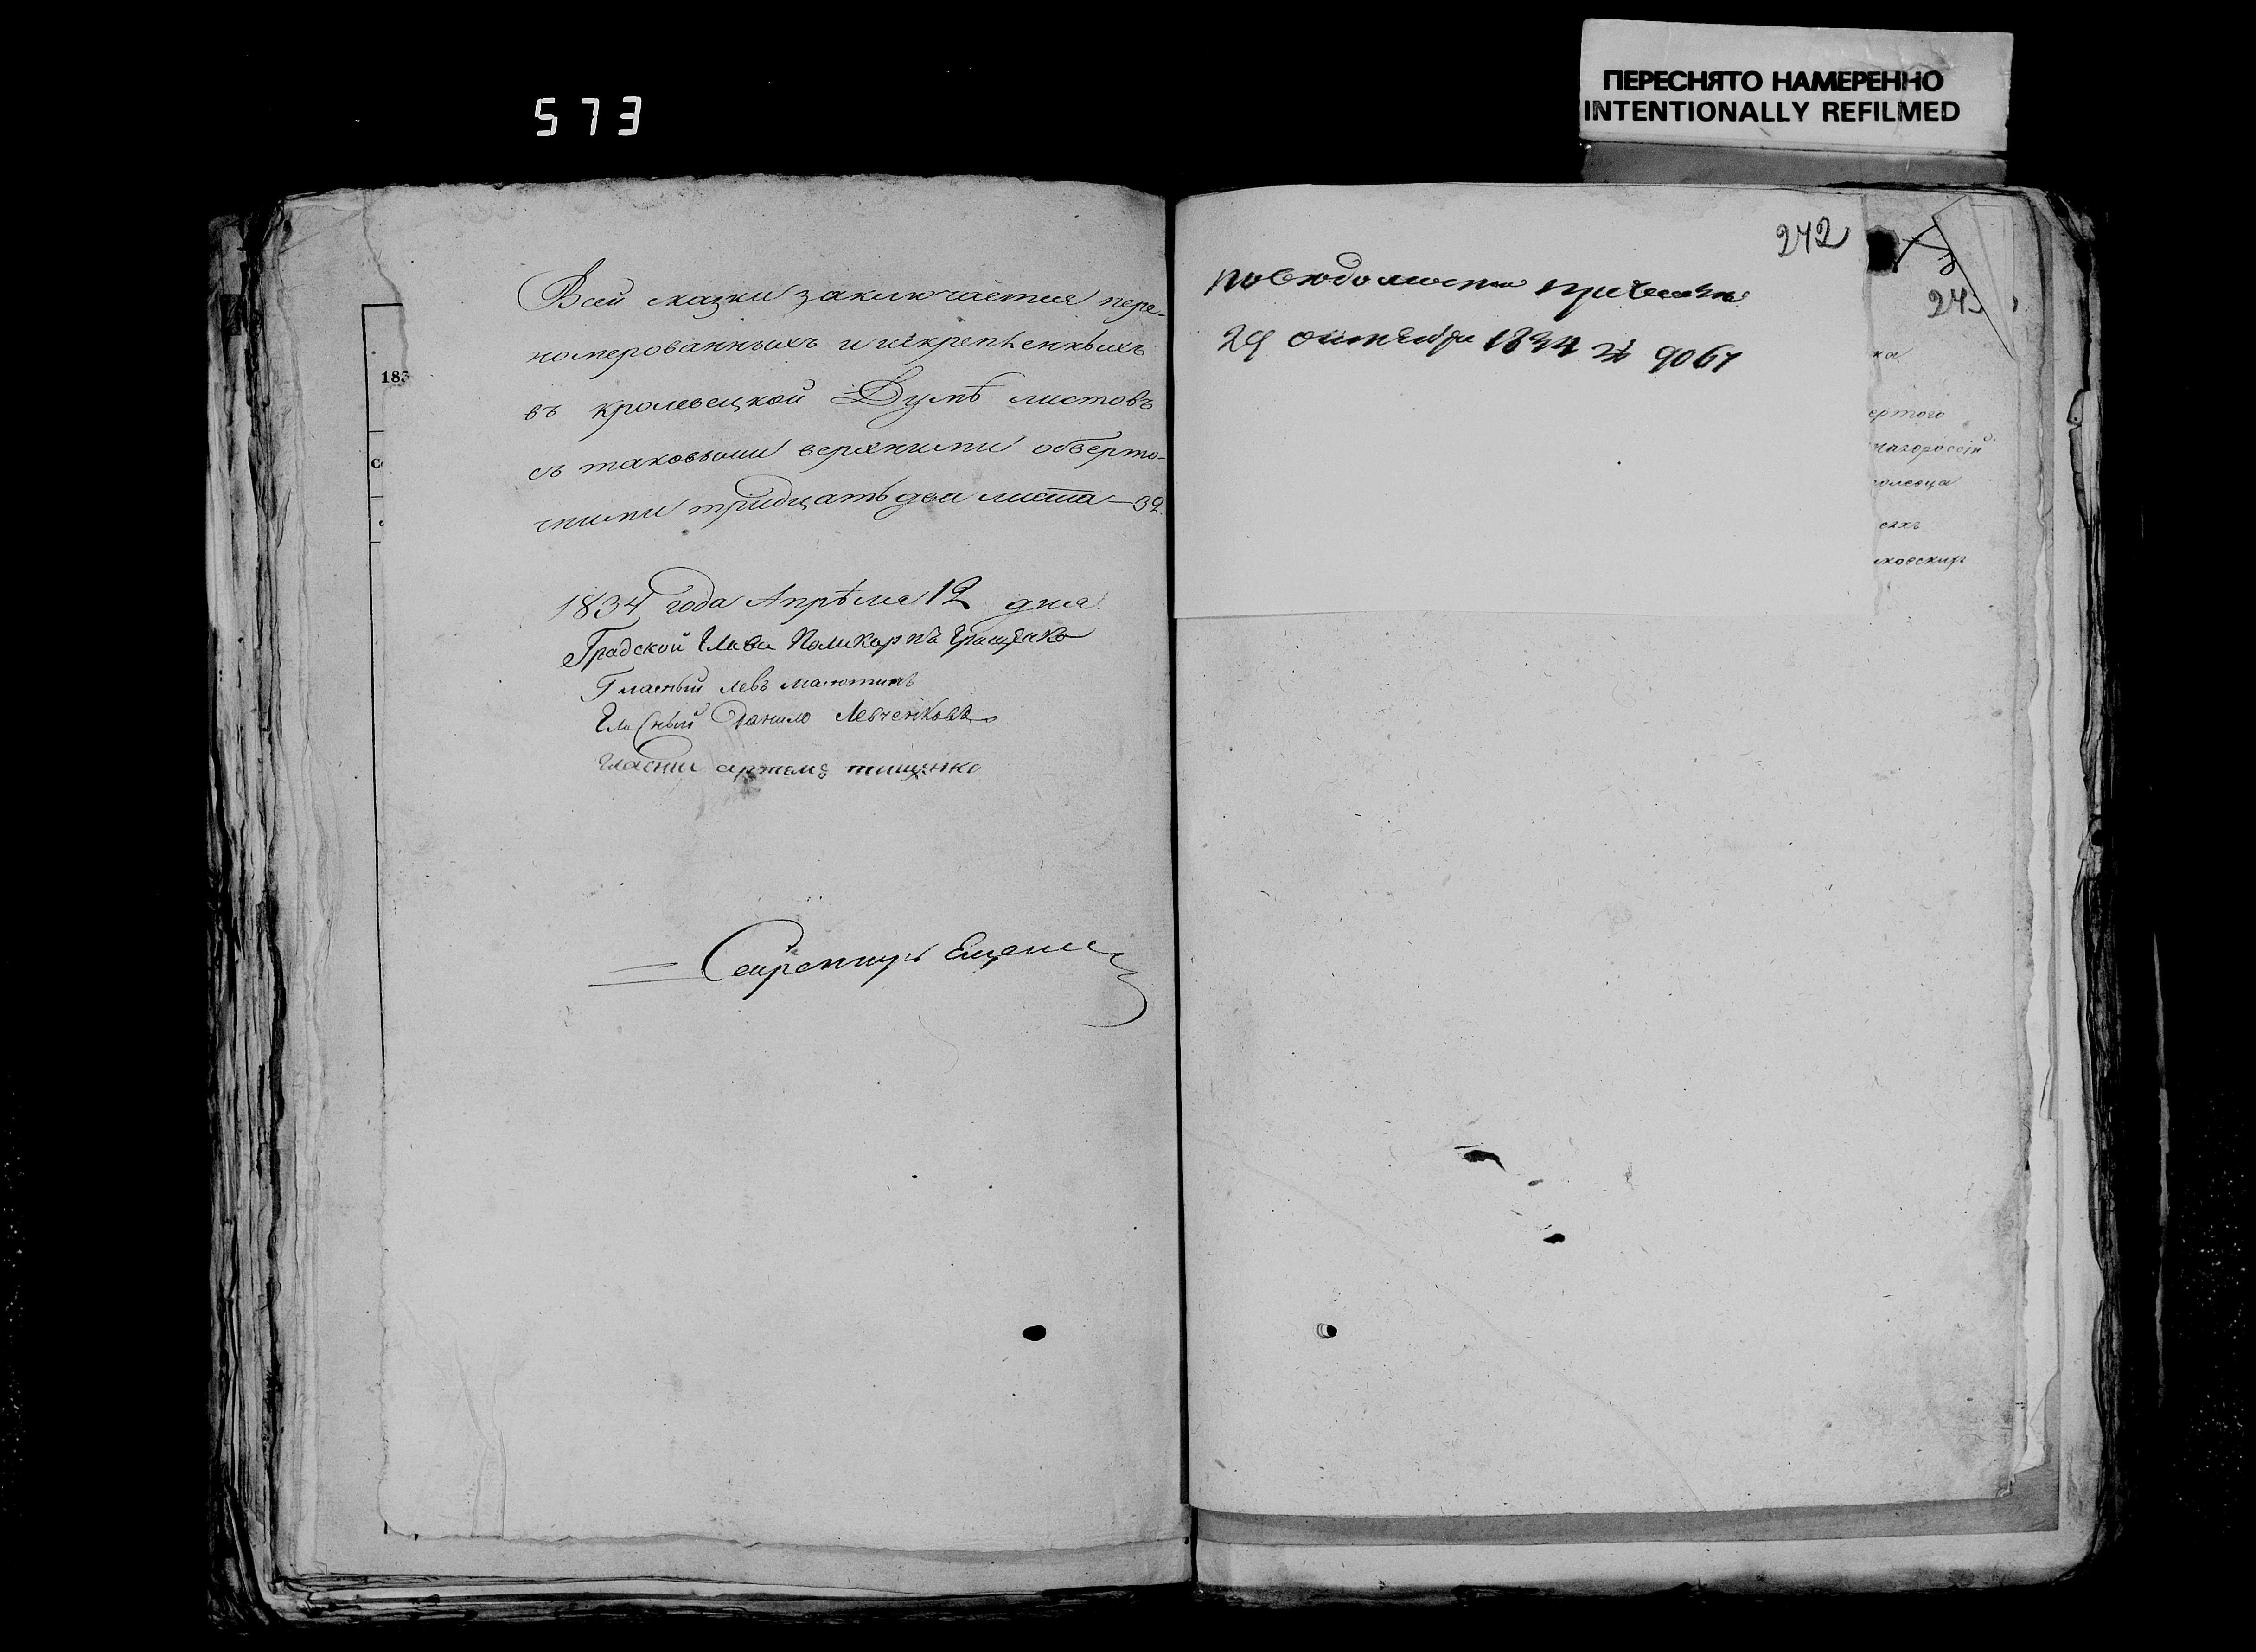 573
ПЕРЕСНЯТО НАМЕРЕННО
INTENTIONALLY REFILMED
183
Всей сказки заключается пере-
номерованныхъ и искрепленныхъ
въ кролевецкой Думѣ листовъ
съ таковыми верхними оберто-
чными тридцать два листа — 32.
1834 года Апрѣля 12 дня
Градской Глава Поликарпъ Грищенко
Гласный Левъ Малютинъ
Гласный Данило Левченковъ
Гласни артемъ тищенко
Секретарь
242
по вѣдомости при
29 октября 1834 № 9067
243
ка
ертого
олевца
сяхъ